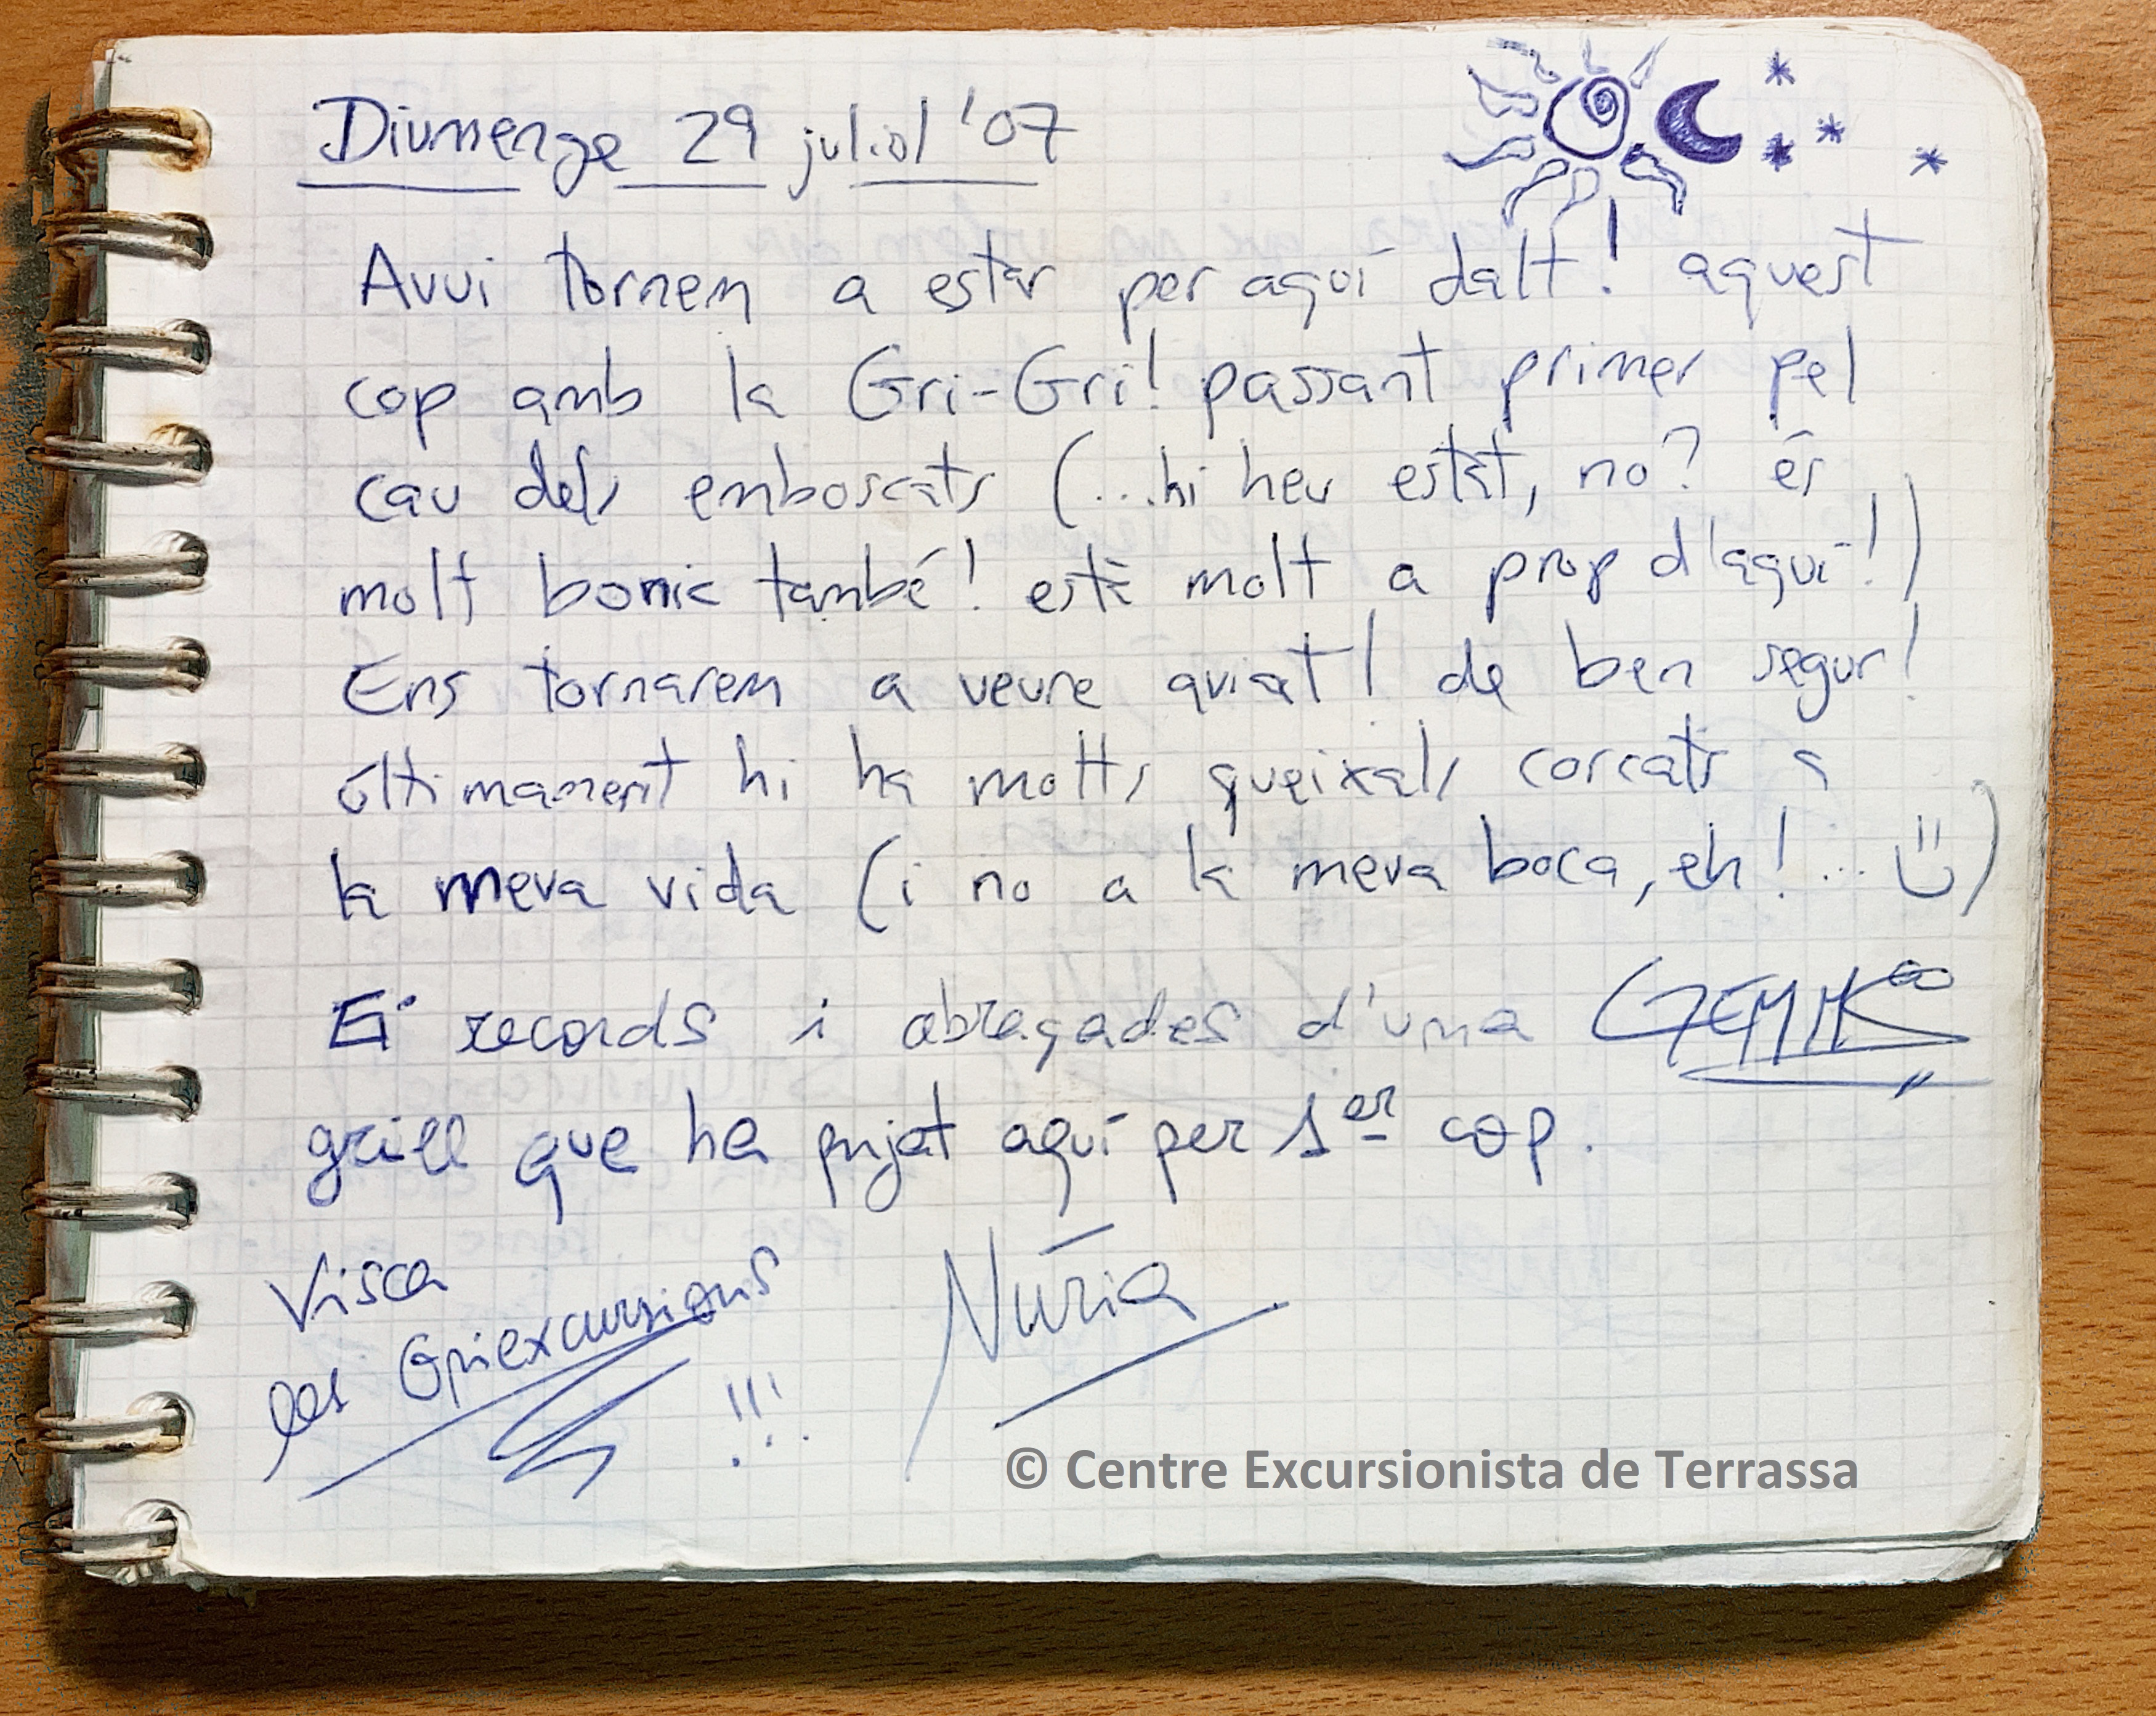 Diumenge 29 juliol '07
Avui tornem a estar per aquí dalt! aquest
cop amb la Gri-Gri! passant primer pel
cau dels emboscats (...hi heu estat, no? és
molt bonic també! està molt a prop d'aquí!)
Ens tornarem a veure aviat! de ben segur!
últimament hi ha molts queixals corcats a
la meva vida (i no a la meva boca, eh!... )
Ei records i abraçades d'una
grill que ha pujat aquí per 1er cop.
Visca
les Griexcursions
!!!
Núria
© Centre Excursionista de Terrassa